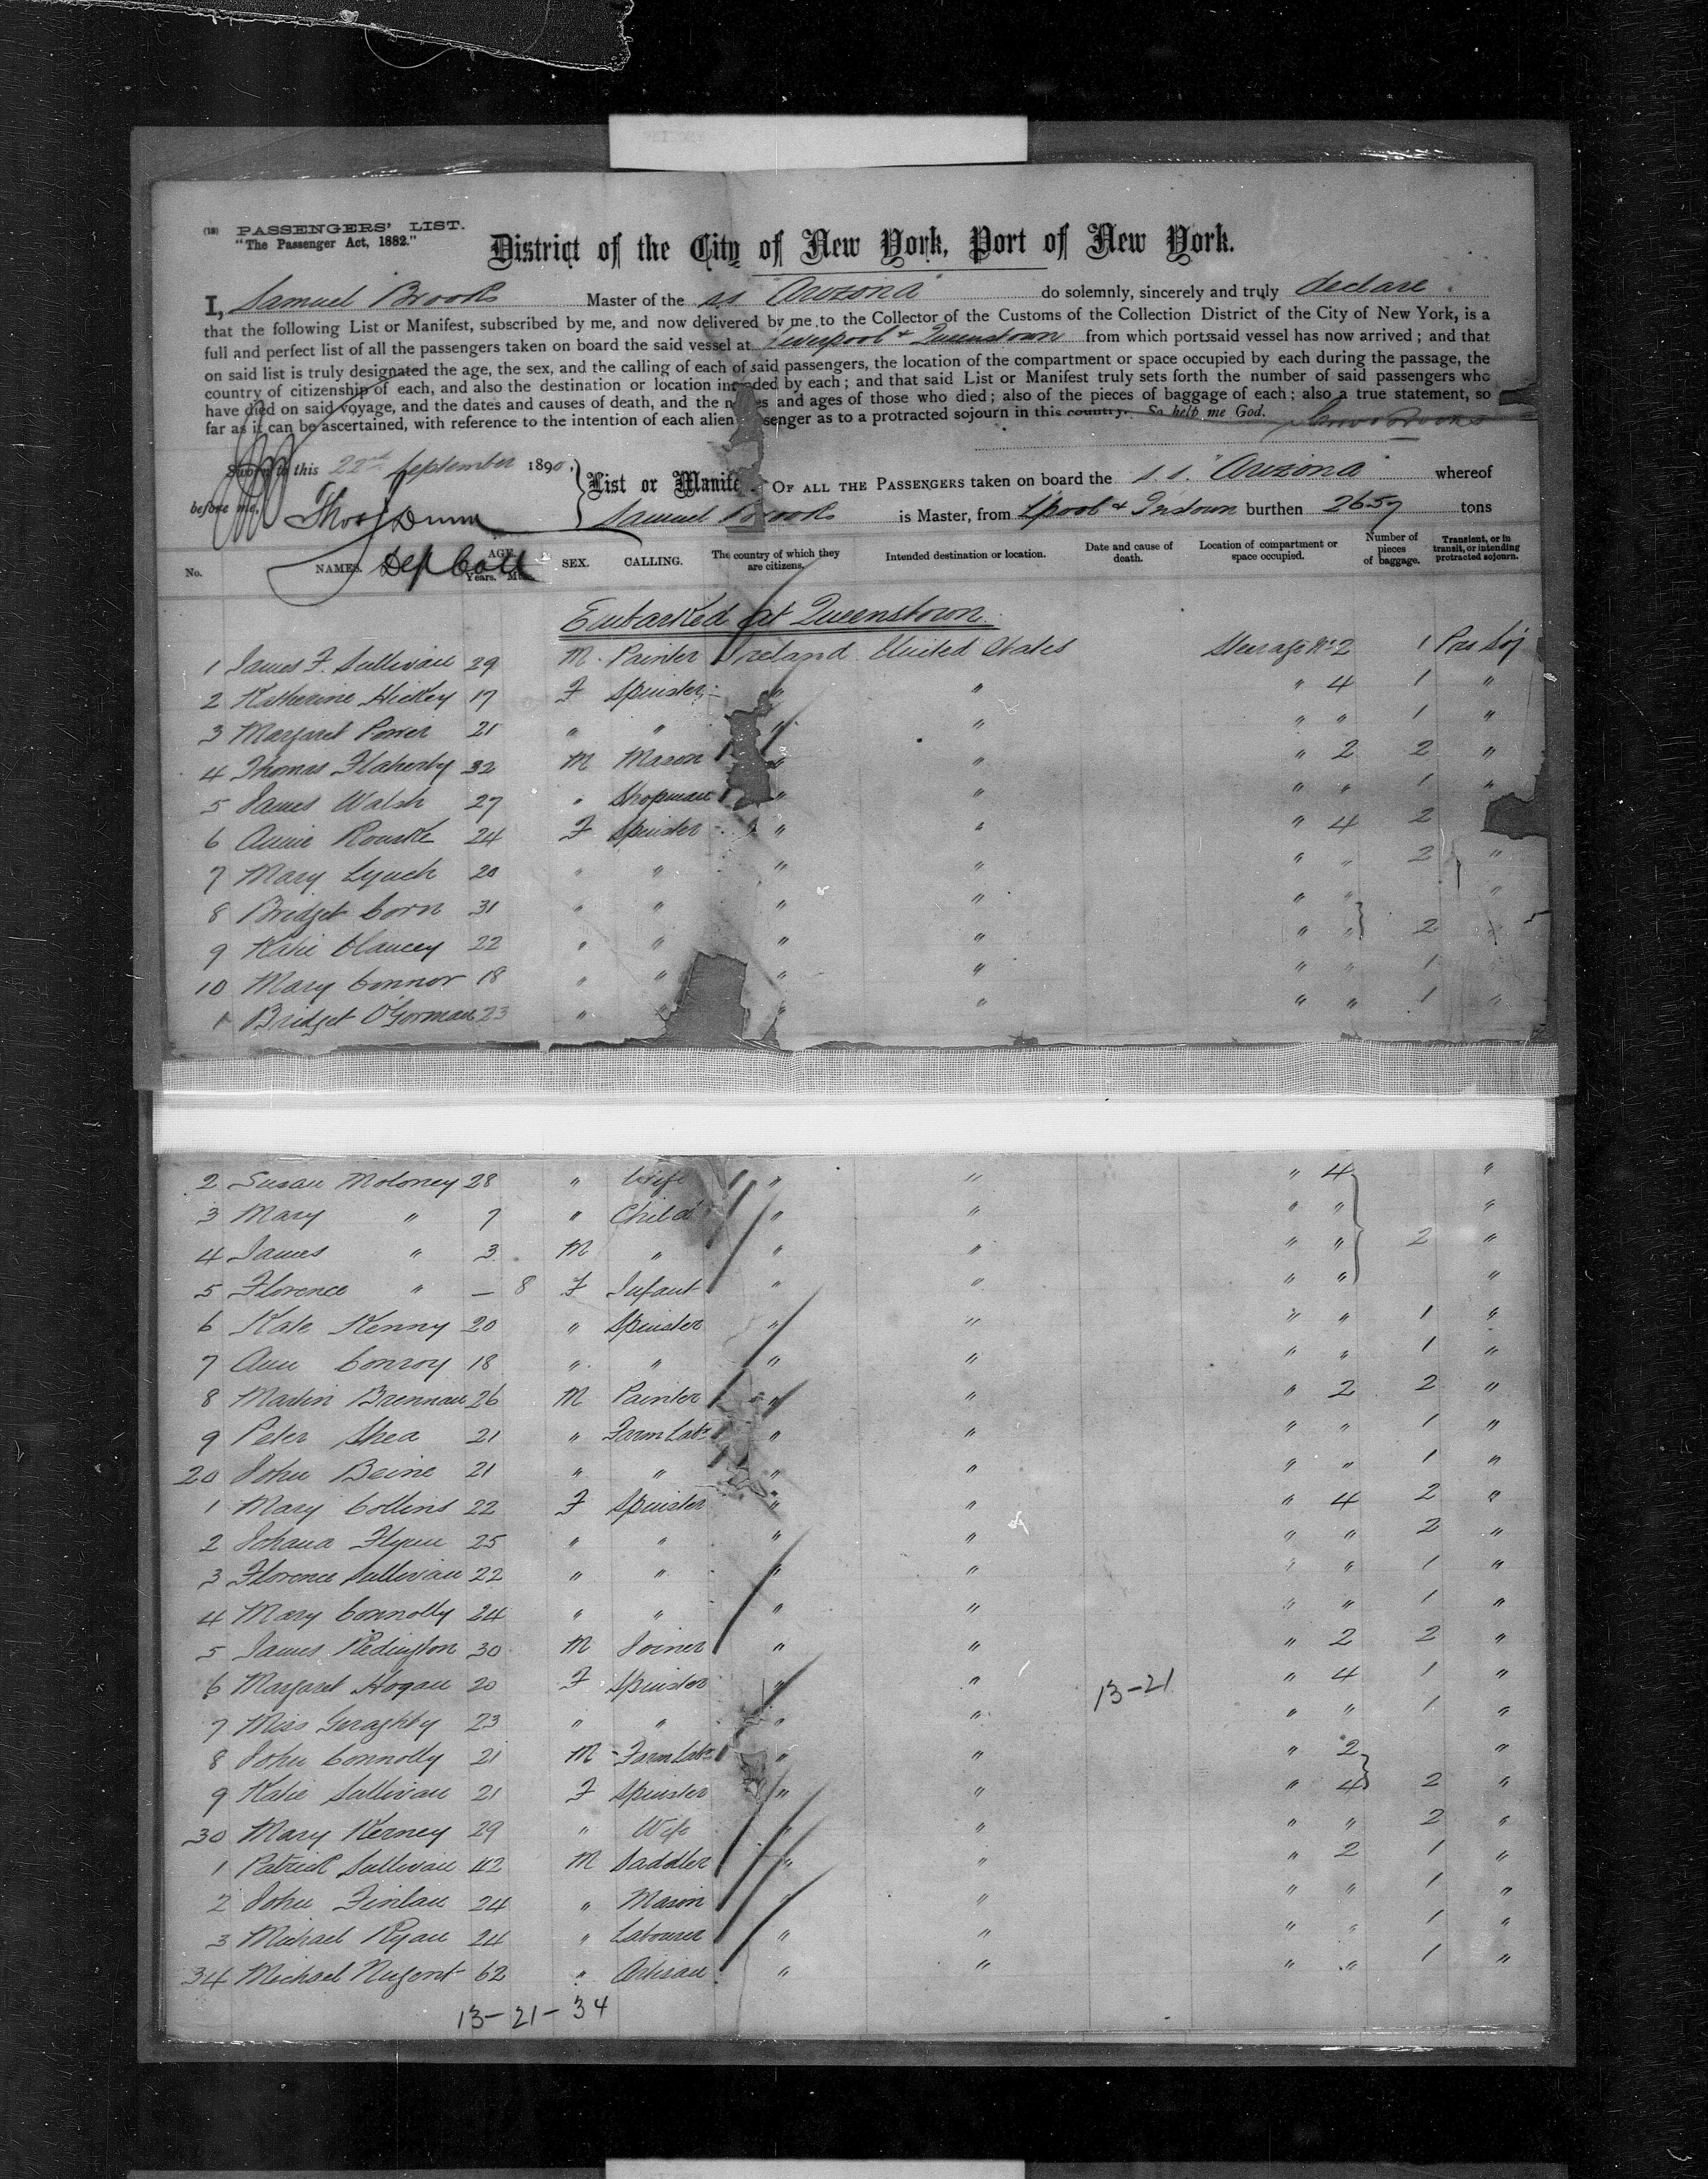 (18) PASSENGERS' LIST.
"The Passenger Act, 1882."
District of the City of New York, Port of New York.
I, Samuel Brooks Master of the s.s "Arizona" do solemnly, sincerely and truly declare.
that the following List or Manifest, subscribed by me, and now delivered by me to the Collector of the Customs of the Collection District of the City of New York, is a
full and perfect list of all the passengers taken on board the said vessel at Liverpool & Queenstown from which ports said vessel has now arrived; and that
on said list is truly designated the age, the sex, and the calling of each of said passengers, the location of the compartment or space occupied by each during the passage, the
country of citizenship of each, and also the destination or location intended by each; and that said List or Manifest truly sets forth the number of said passengers who
have died on said voyage, and the dates and causes of death, and the names and ages of those who died; also of the pieces of baggage of each; also a true statement, so
far as it can be ascertained, with reference to the intention of each alien senger as to a protracted sojourn in this country. So help me God.
Sworn to this 22nd September 1890,
before me, Thos J Dunn
Dep Coll
List or Manife OF ALL THE PASSENGERS taken on board the s.s. "Arizona" whereof
Samuel Brooks is Master, from L'pool & Q'nstown burthen 2659 tons
No. NAMES. AGE. Years. Mos. SEX. CALLING. The country of which they are citizens. Intended destination or location. Date and cause of death. Location of compartment or space occupied. Number of pieces of baggage. Transient, or in transit, or intending protracted sojourn.
Embarked at Queenstown.
1 James F. Sullivan 29 M. Painter Ireland United States Steerage No 2 1 Pro Soj
2 Katherine Hickey 17 F Spinster " " " 4 1 "
3 Margaret Power 21 " " " " " " 1 "
4 Thomas Flaherty 32 M Mason " " " 2 2 "
5 James Walsh 27 " Shopman " " " " 1 "
6 Annie Rourke 24 F Spinster " " " 4 2
7 Mary Lynch 20 " " " " " " 2 "
8 Bridget Corn 31 " " " " " " "
9 Katie Clancey 22 " " " " " " 2 "
10 Mary Connor 18 " " " " " " 1 "
1 Bridget O'Gorman 23 " " " " " 1 "
2 Susan Moloney 28 " Wife " " " 4 "
3 Mary " 7 " Child " " " " "
4 James " 3 M " " " " " 2 "
5 Florence " — 8 F Infant " " " " "
6 Kate Kenny 20 " Spinster " " " " 1 "
7 Ann Conroy 18 " " " " " " 1 "
8 Martin Brennan 26 M Painter " " " 2 2 "
9 Peter Shea 21 " Farm Labr " " " " 1 "
20 John Beine 21 " " " " " " 1 "
1 Mary Collins 22 F Spinster " " " 4 2 "
2 Johana Flynn 25 " " " " " " 2 "
3 Florence Sullivan 22 " " " " " " 1 "
4 Mary Connolly 24 " " " " " " 1 "
5 James Redington 30 M Joiner " " " 2 2 "
6 Margaret Hogan 20 F Spinster " " 13-21 " 4 1 "
7 Miss Geraghty 23 " " " " " " 1 "
8 John Connolly 21 M Farm Labr " " " 2 "
9 Katie Sullivan 21 F Spinster " " " 4 2 "
30 Mary Kerney 29 " Wife " " " " 2 "
1 Patrick Sullivan 42 M Saddler " " " 2 1 "
2 John Finlan 24 " Mason " " " " 1 "
3 Michael Ryan 24 " Labourer " " " " 1 "
34 Michael Nugent 62 " Artisan " " " " 1 "
13-21-34